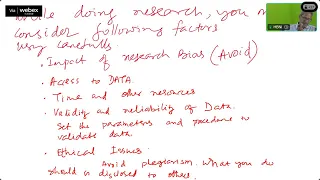 while doing research, you m
consider following factors
very carefully.
• Impact of research Bias (Avoid)
• Access to DATA.
• Time and other resources
• Validity and reliability of Data.
Set the parameters and procedure to
validate data.
• Ethical Issues:
Avoid plagiarism. What you do
should be disclosed to others.
Via webex